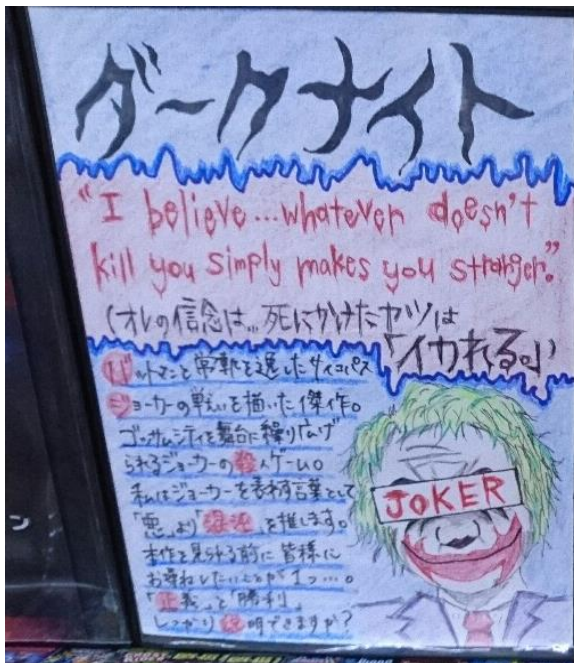 ダークナイト
"I believe...whatever doesn't
kill you simply makes you stranger."
(オレの信念は...死にかけたヤツは
「イカれる。」)
バットマンと常軌を逸したサイコパス
ジョーカーの戦いを描いた傑作。
ゴッサムシティを舞台に繰り広げ
られるジョーカーの殺人ゲーム。
私はジョーカーを表わす言葉として
「悪」より「混沌」を推します。
本作を見られる前に皆様に
お尋ねしたいことが1つ...。
「正義」と「勝利」
しっかり説明できますか?
JOKER
ン